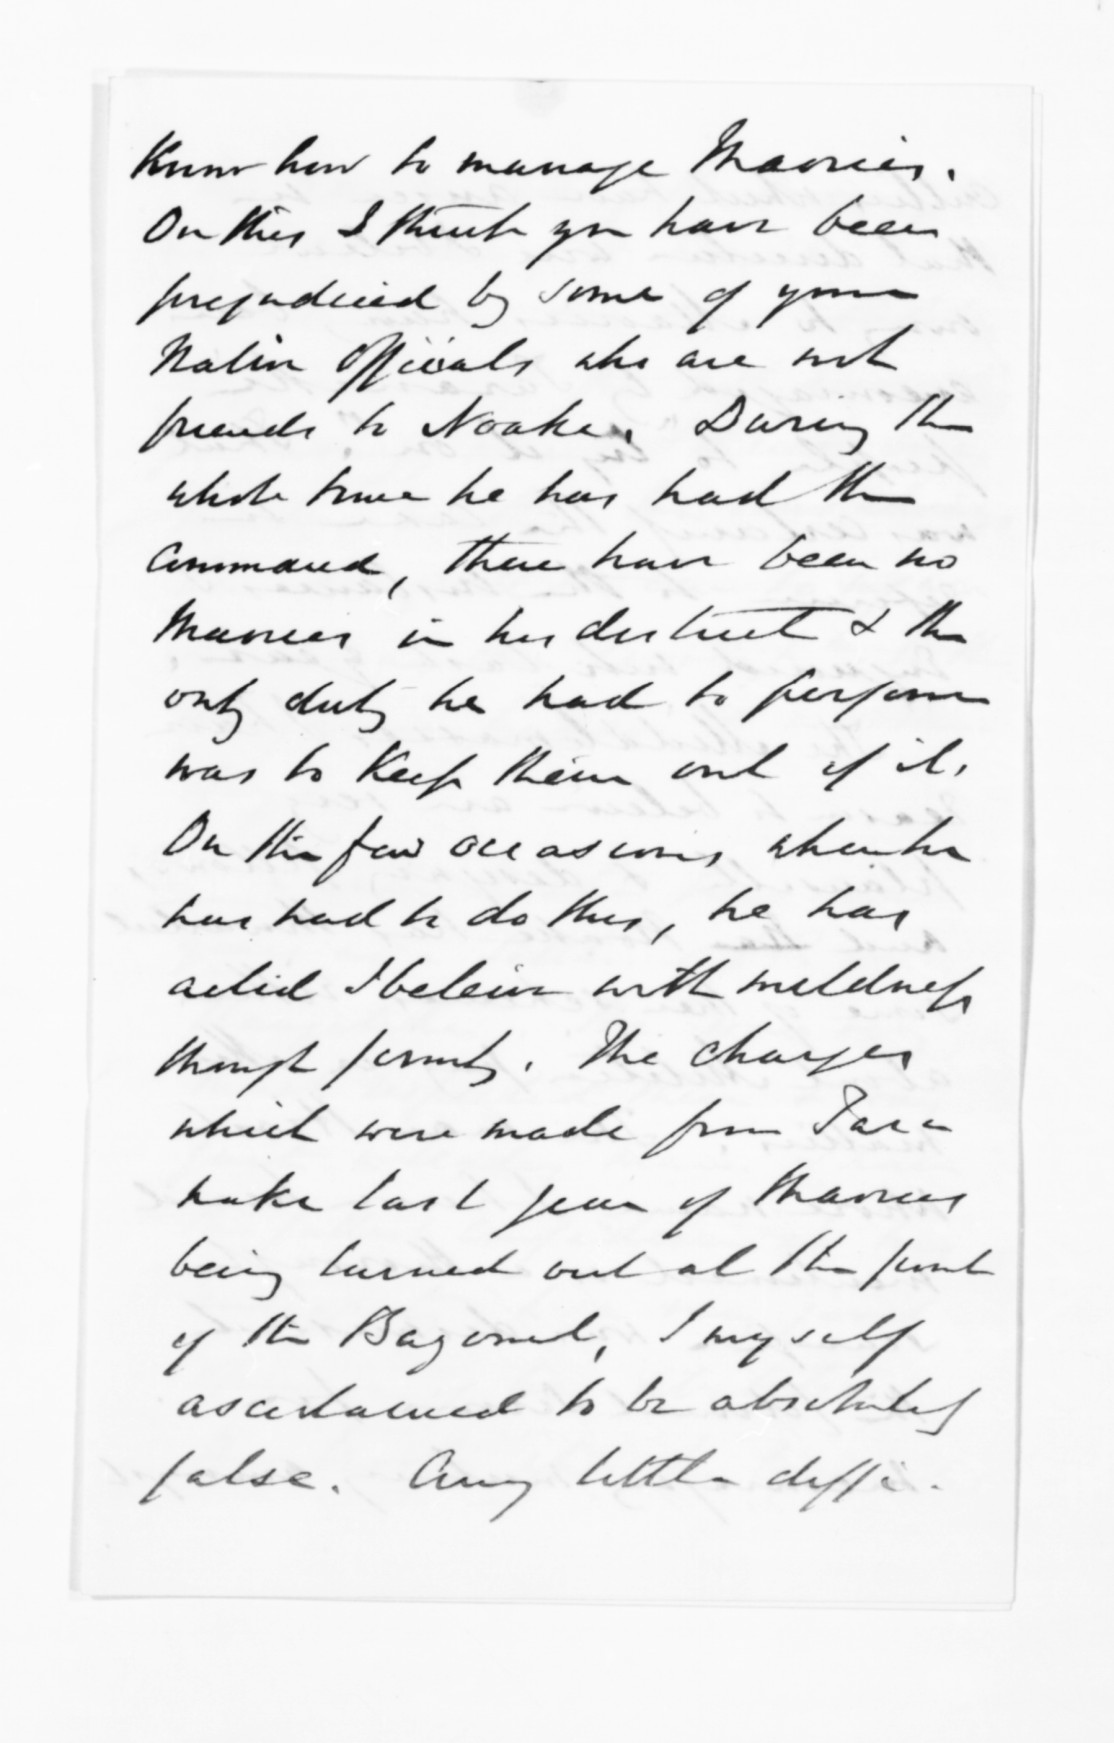 know how to manage Maories.
On this I think you have been
prejudiced by some of your
Native Officials who are not
friends to Noake. During the
whole time he has had the
Command, there have been no
Maories in his district & the
only duty he had to perform
was to keep them out of it.
On the few occasions when he
has had to do this, he has
acted I beleive with mildness
though firmly. The charges
which were made from Tara
naki last year of Maories
being turned out at the point
of the Bayonet, I myself
ascertained to be absolutely
false. Any little diffi-